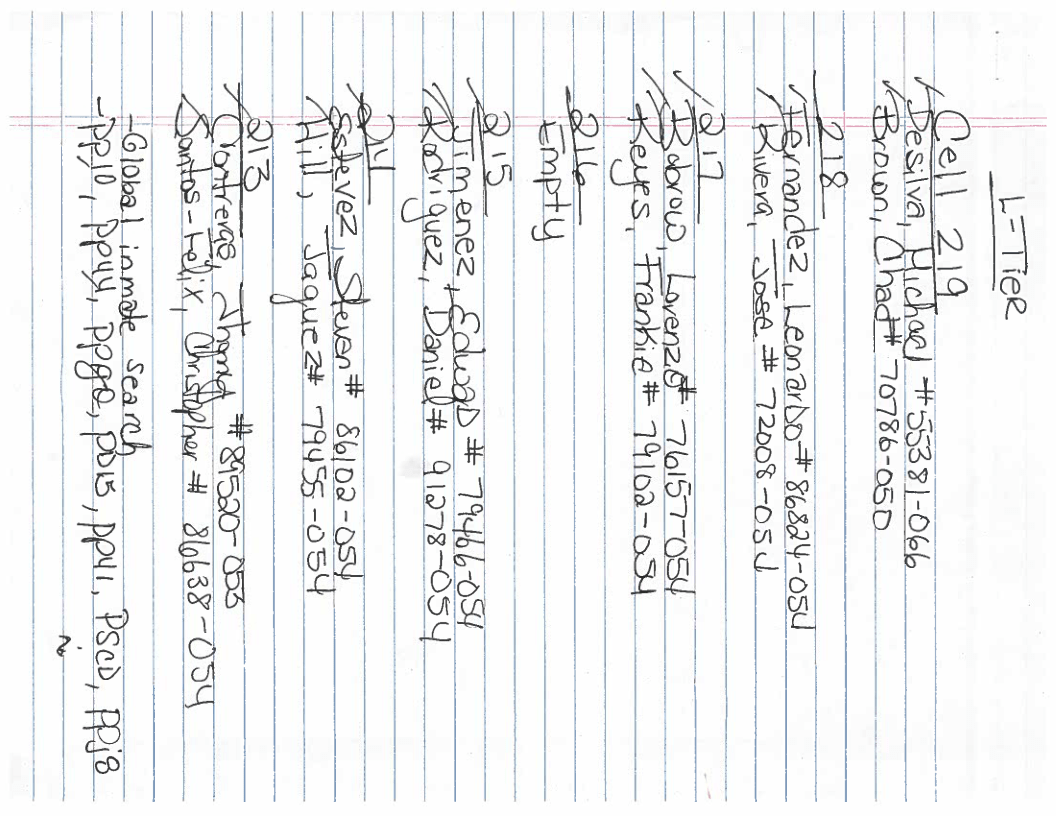 L-TIER
Cell 219
Desilva, Michael #55381-066
Brown, Chad# 70786-050
218
Fernandez, Leonardo# 86824-054
Rivera, Jose # 72008-054
217
Lorenzo# 76157-054
Reyes, Frankie # 79102-054
216
Empty
215
Jimenez, Edward # 79466-054
Rodriguez, Daniel# 91278-054
214
Estevez, Steven# 86102-054
Hill, Jaquez# 79455-054
213
Contreras #89520-053
Santos-Felix, Christopher # 86638-054
-Global inmate search
-pp10, pp44, ppg0, pp15, pp41, PSCD, ppj8